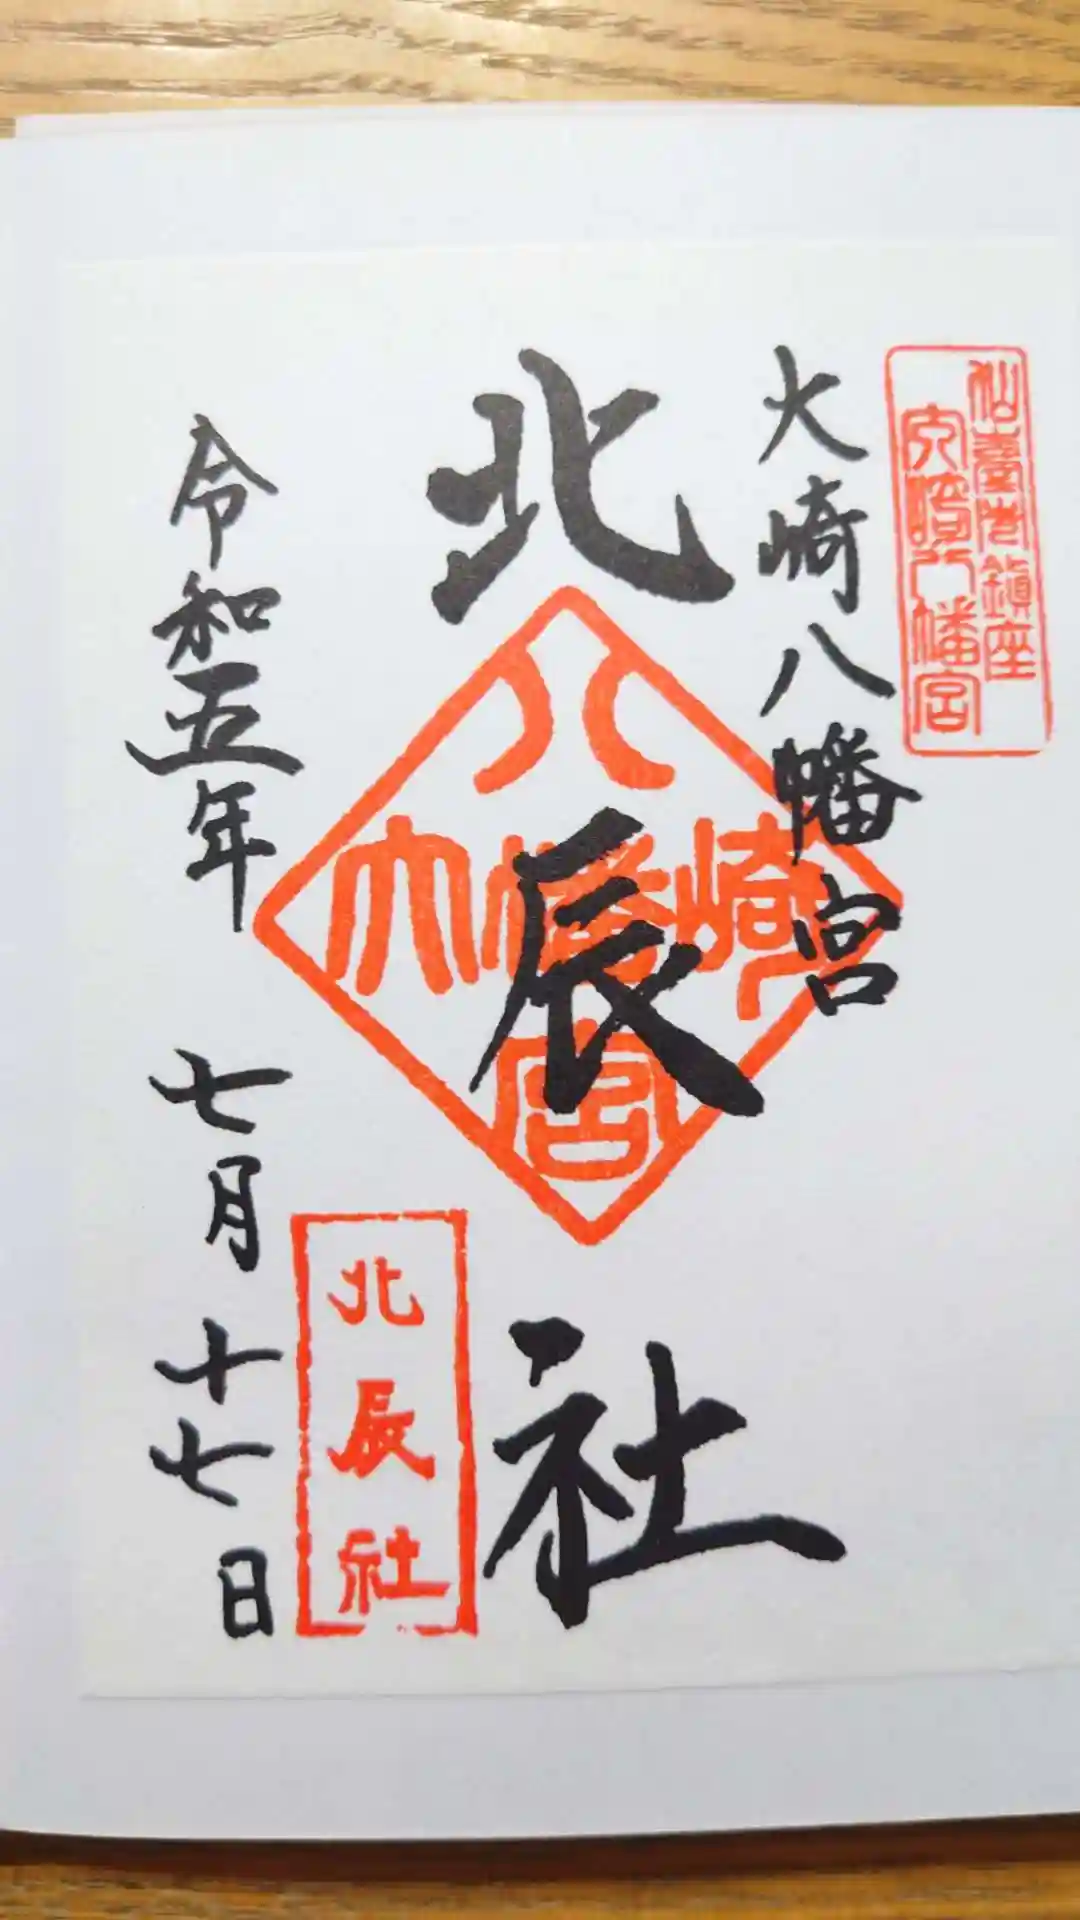 仙臺 鎮座
大崎八幡宮
大崎八幡宮
北辰社
八
大幡崎
宮
北辰社
令和五年 七月十七日